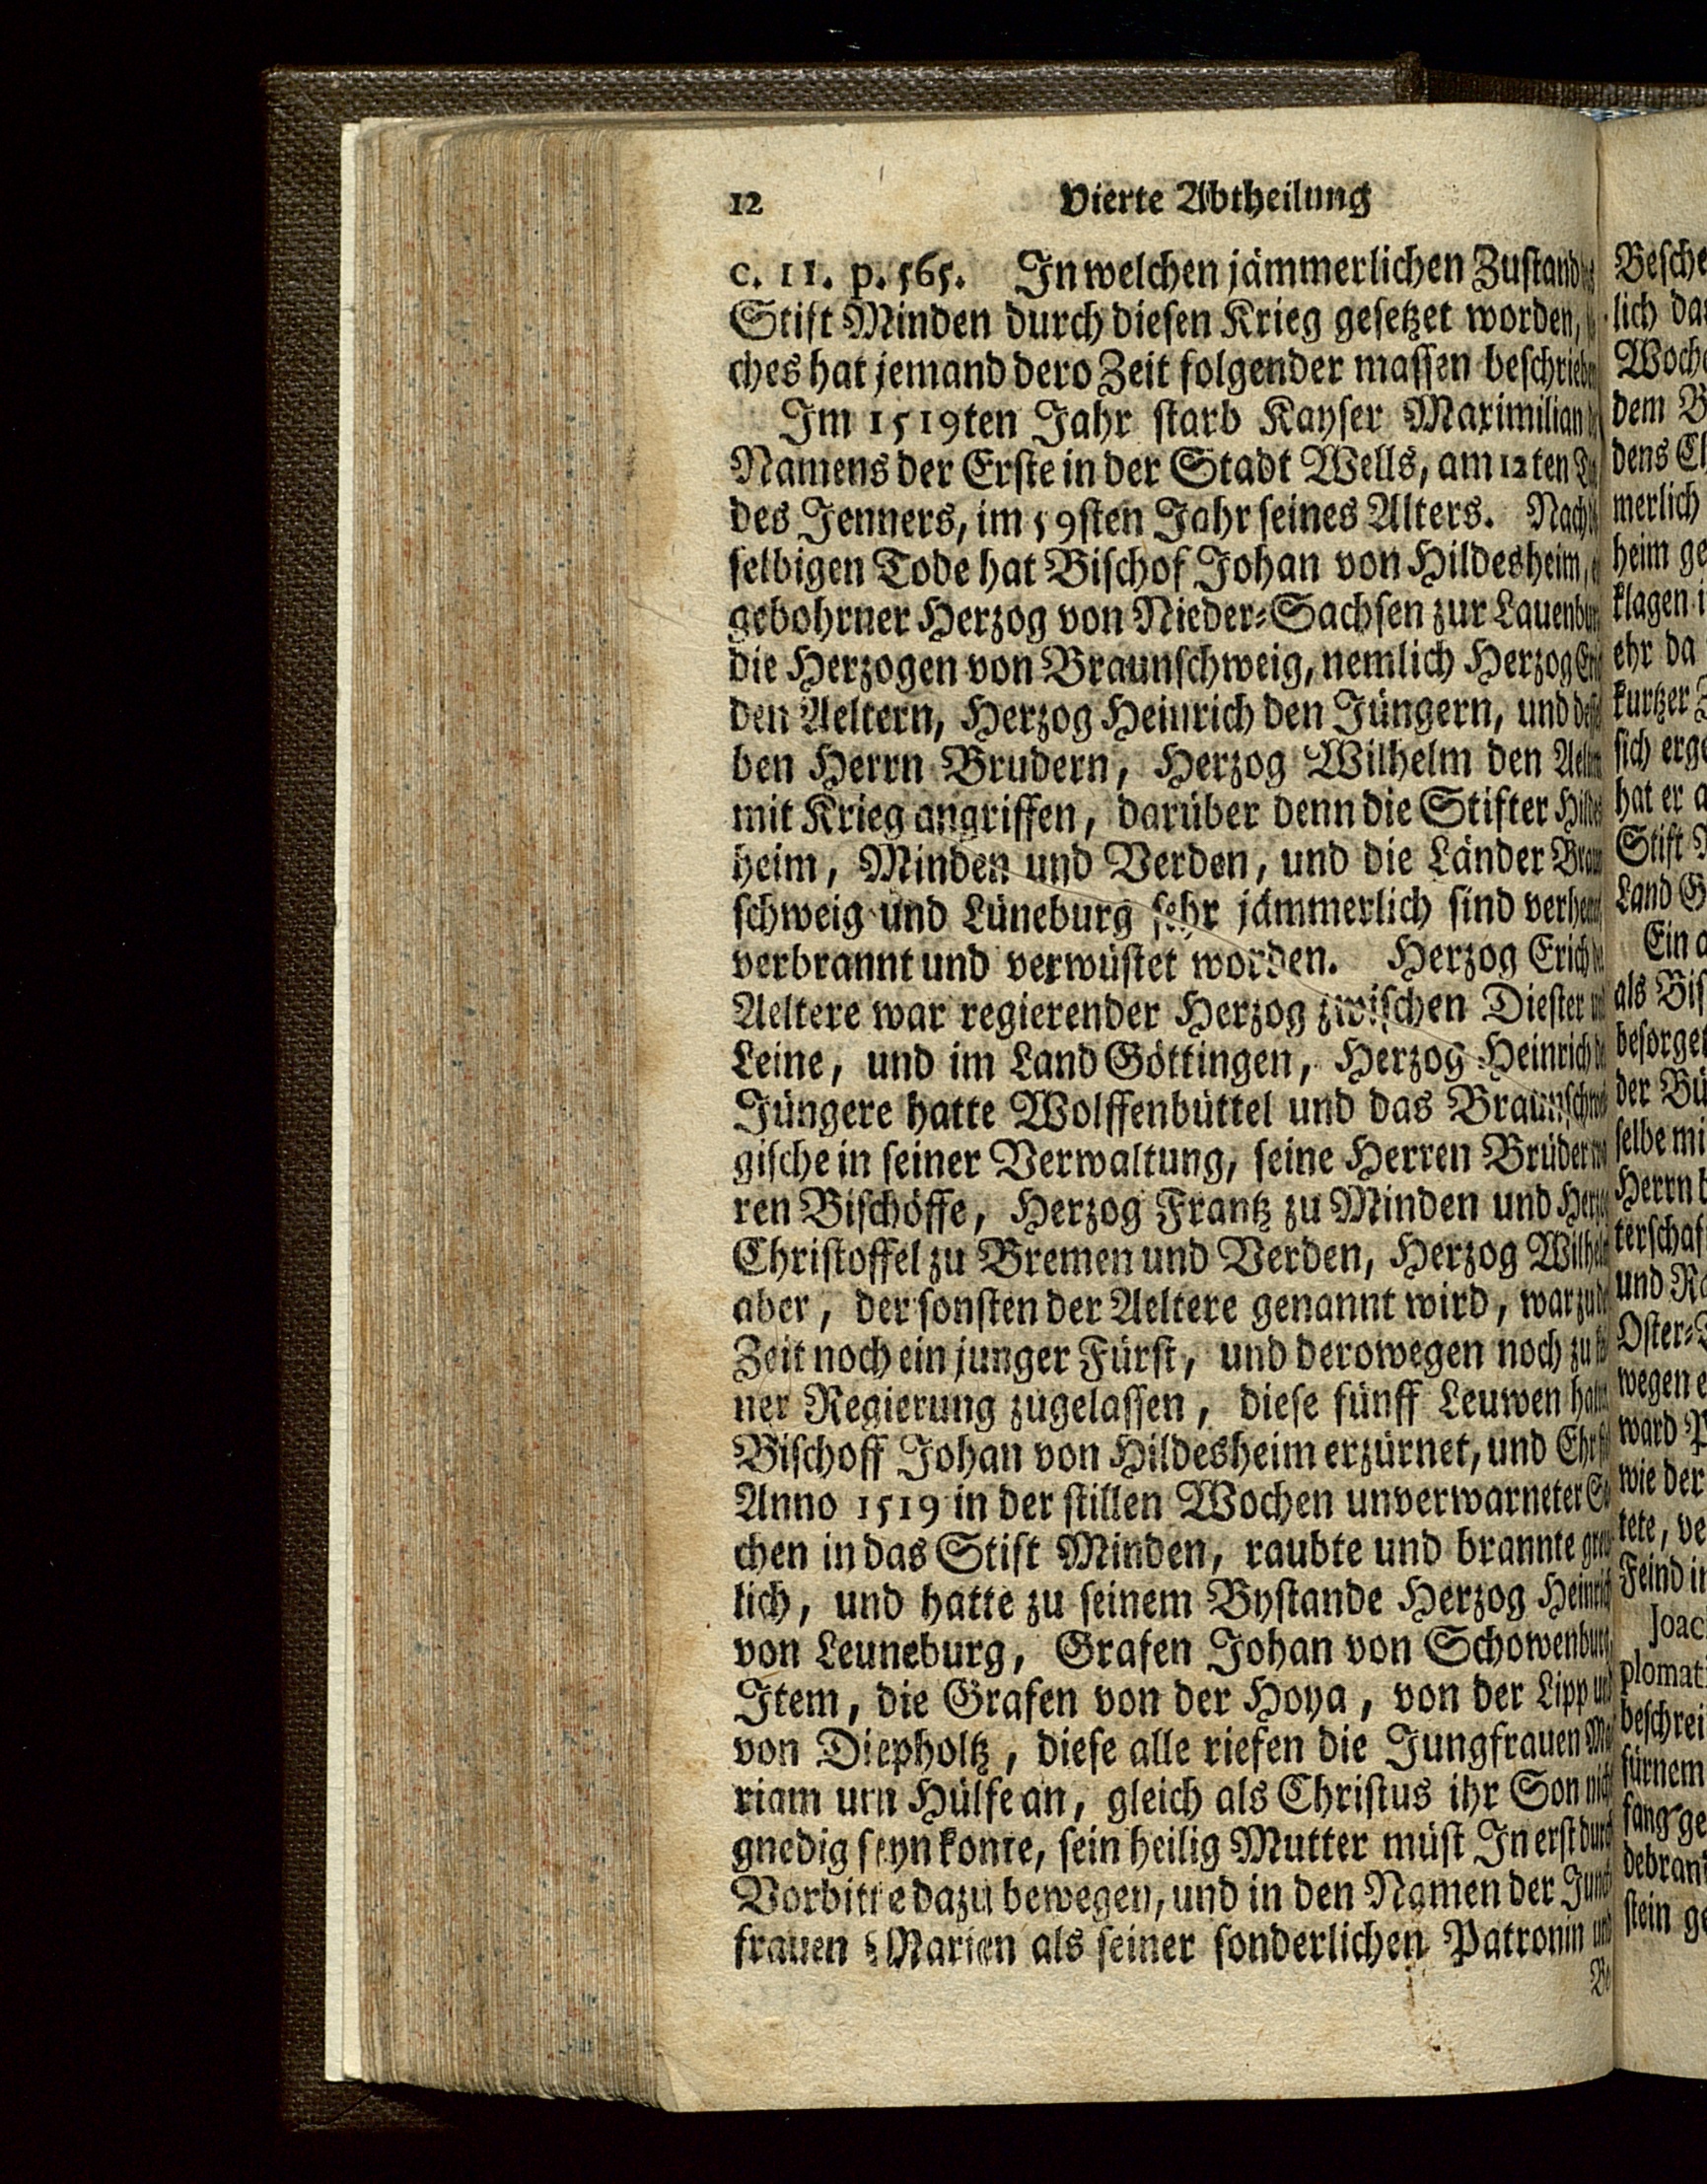 12 Vierte Abtheilung
c. 11. p. 565. In welchen jämmerlichen Zustand
Stift Minden durch diesen Krieg gesetzet worden,
ches hat jemand dero Zeit folgender massen beschrieben
Im 1519ten Jahr starb Kayser Maximilian
Namens der Erste in der Stadt Wells, am 12ten
des Jenners, im 59sten Jahr seines Alters. Nach
selbigen Tode hat Bischof Johan von Hildesheim,
gebohrner Herzog von Nieder-Sachsen zur Lauenburg
die Herzogen von Braunschweig, nemlich Herzog
den Aeltern, Herzog Heinrich den Jüngern, und
ben Herrn Brudern, Herzog Wilhelm den Aeltern
mit Krieg angriffen, darüber denn die Stifter Hildes
heim, Minden und Verden, und die Länder Braun
schweig und Lüneburg sehr jämmerlich sind verheert
verbrannt und verwüstet worden. Herzog Erich
Aeltere war regierender Herzog zwischen Diester
Leine, und im Land Göttingen, Herzog Heinrich
Jüngere hatte Wolffenbüttel und das Braunschwei
gische in seiner Verwaltung, seine Herren Brüder
ren Bischöffe, Herzog Frantz zu Minden und Herzog
Christoffel zu Bremen und Verden, Herzog Wilhelm
aber, der sonsten der Aeltere genannt wird, war
Zeit noch ein junger Fürst, und derowegen noch zu
ner Regierung zugelassen, diese fünff Leuwen
Bischoff Johan von Hildesheim erzürnet, und
Anno 1519 in der stillen Wochen unverwarneter
chen in das Stift Minden, raubte und brannte
lich, und hatte zu seinem Bystande Herzog Heinrich
von Leuneburg, Grafen Johan von Schowenburg,
Item, die Grafen von der Hoya, von der Lipp und
von Diepholtz, diese alle riefen die Jungfrauen Ma
riam um Hülfe an, gleich als Christus ihr Son nicht
gnedig seyn konte, sein heilig Mutter müst In erst durch
Vorbitte dazu bewegen, und in den Namen der Jung
frauen Marien als seiner sonderlichen Patronin und
Besche
lich
Woche
dem
dens
merlich
heim
klagen
ehr da
kurtzer
sich
hat er
Stift
Land
Ein
als Bis
besorge
der Bü
selbe mi
Herrn
terschaf
und
Oster-
wegen
ward
wie der
tete, ve
Feind
Joac
plomat
beschrei
fürnem
fang ge
debran
stein